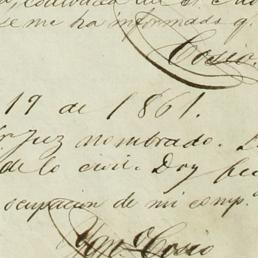 se me ha informado q.
Cosio.
19 de 1861.
Juz nombrado.
de lo civil. Doy fe
ocupacion de mi comp.ª
Cosio